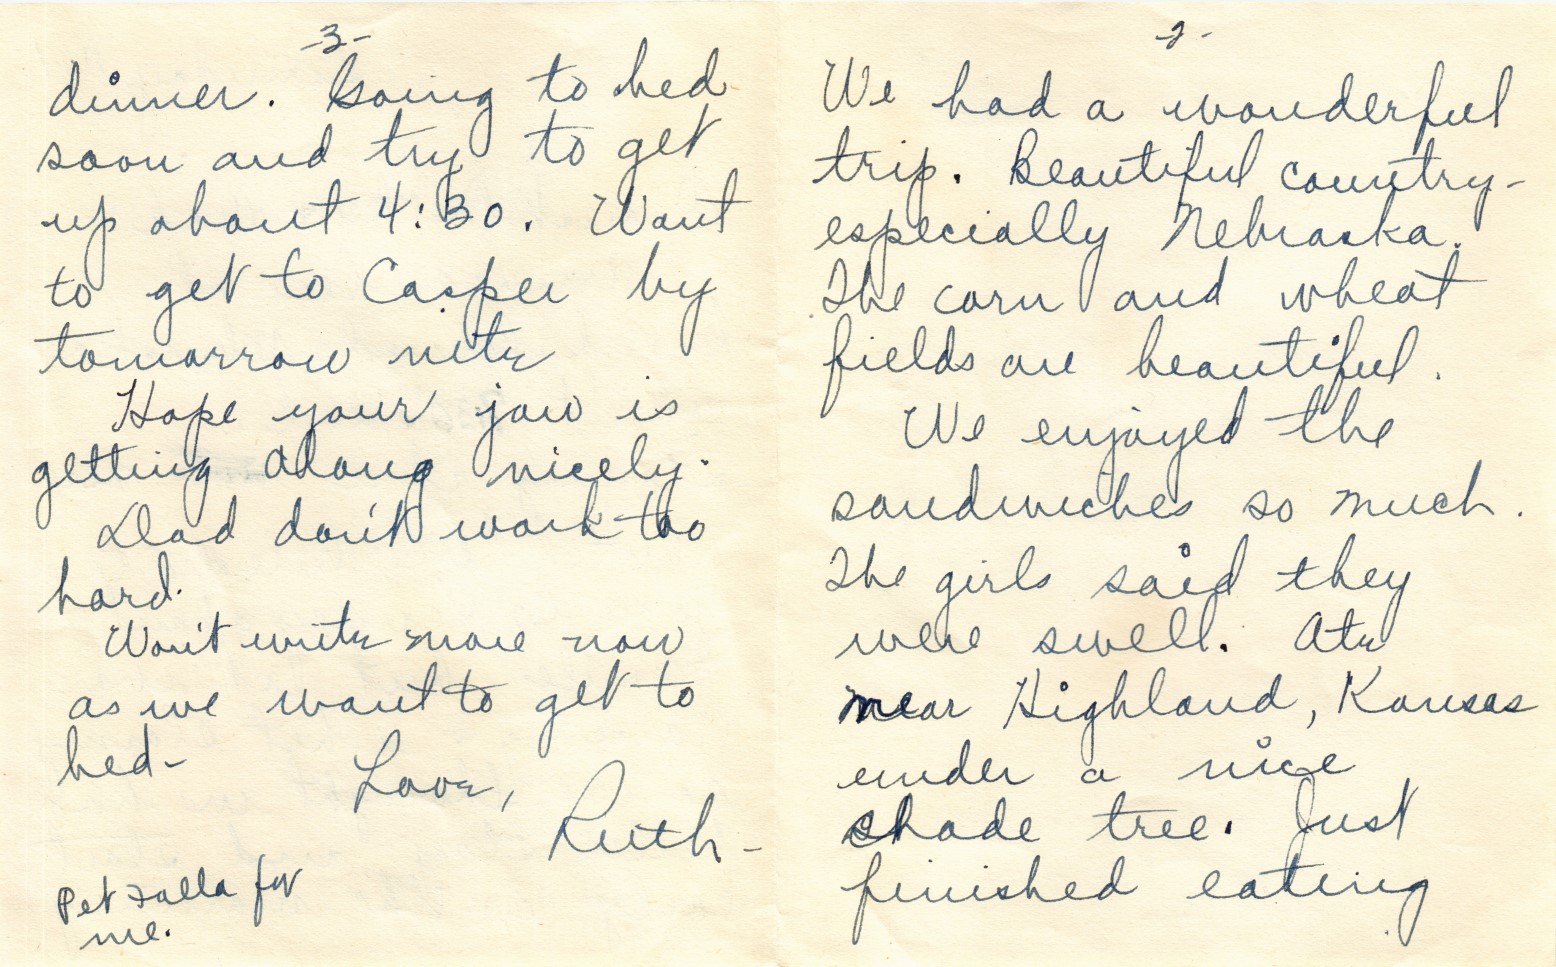 -2-
We had a wonderful
trip. Beautiful country -
especially Nebraska.
The corn and wheat
fields are beautiful.
We enjoyed the
sandwiches so much.
The girls said they
were swell. Ate
near Highland, Kansas
under a nice
shade tree. Just
finished eating
-3-
dinner. Going to bed
soon and try to get
up about 4:30. Want
to get to Casper by
tomorrow nite
Hope your jaw is
getting along nicely.
Dad don't work too
hard.
Won't write more now
as we want to get to
bed -
Love,
Ruth -
Pet for
me.